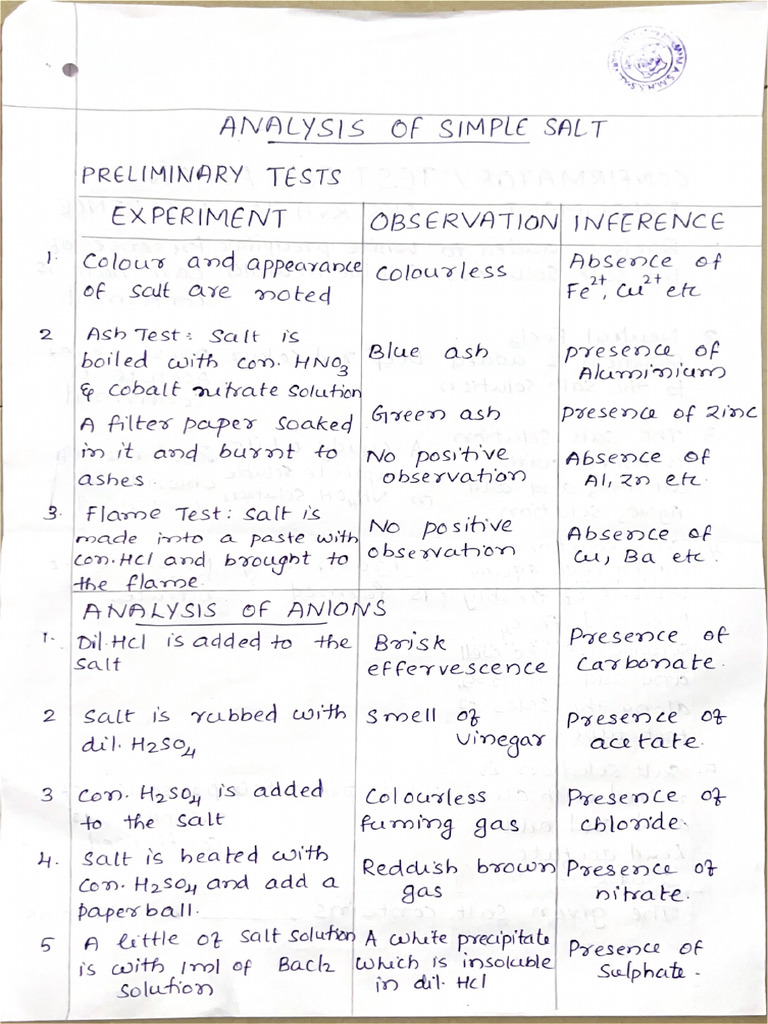 ANALYSIS OF SIMPLE SALT
PRELIMINARY TESTS
EXPERIMENT OBSERVATION INFERENCE
1. Colour and appearance of salt are noted
Colourless
Absence of
Fe2+, Cu2+ etc
2 Ash Test: Salt is
boiled with con. HNO3
& cobalt nitrate solution
A filter paper soaked
in it and burnt to
ashes
Blue ash
presence of
Aluminium
Green ash
presence of Zinc
No positive
observation
Absence of
Al, Zn etc.
3. Flame Test: Salt is
made into a paste with
con. HCl and brought to
the flame.
No positive
observation
Absence of
Cu, Ba etc.
ANALYSIS OF ANIONS
1. Dil. HCl is added to the
salt
Brisk
effervescence
Presence of
Carbonate.
2 Salt is rubbed with
dil. H2SO4
Smell of
vinegar
Presence of
acetate.
3 Con. H2SO4 is added
to the salt
Colourless
fuming gas
Presence of
chloride.
4. Salt is heated with
con. H2SO4 and add a
paper ball.
Reddish brown
gas
Presence of
nitrate.
5 A little of salt solution
is with 1ml of Bacl2
solution
A white precipitate
which is insoluble
in dil. HCl
Presence of
Sulphate.